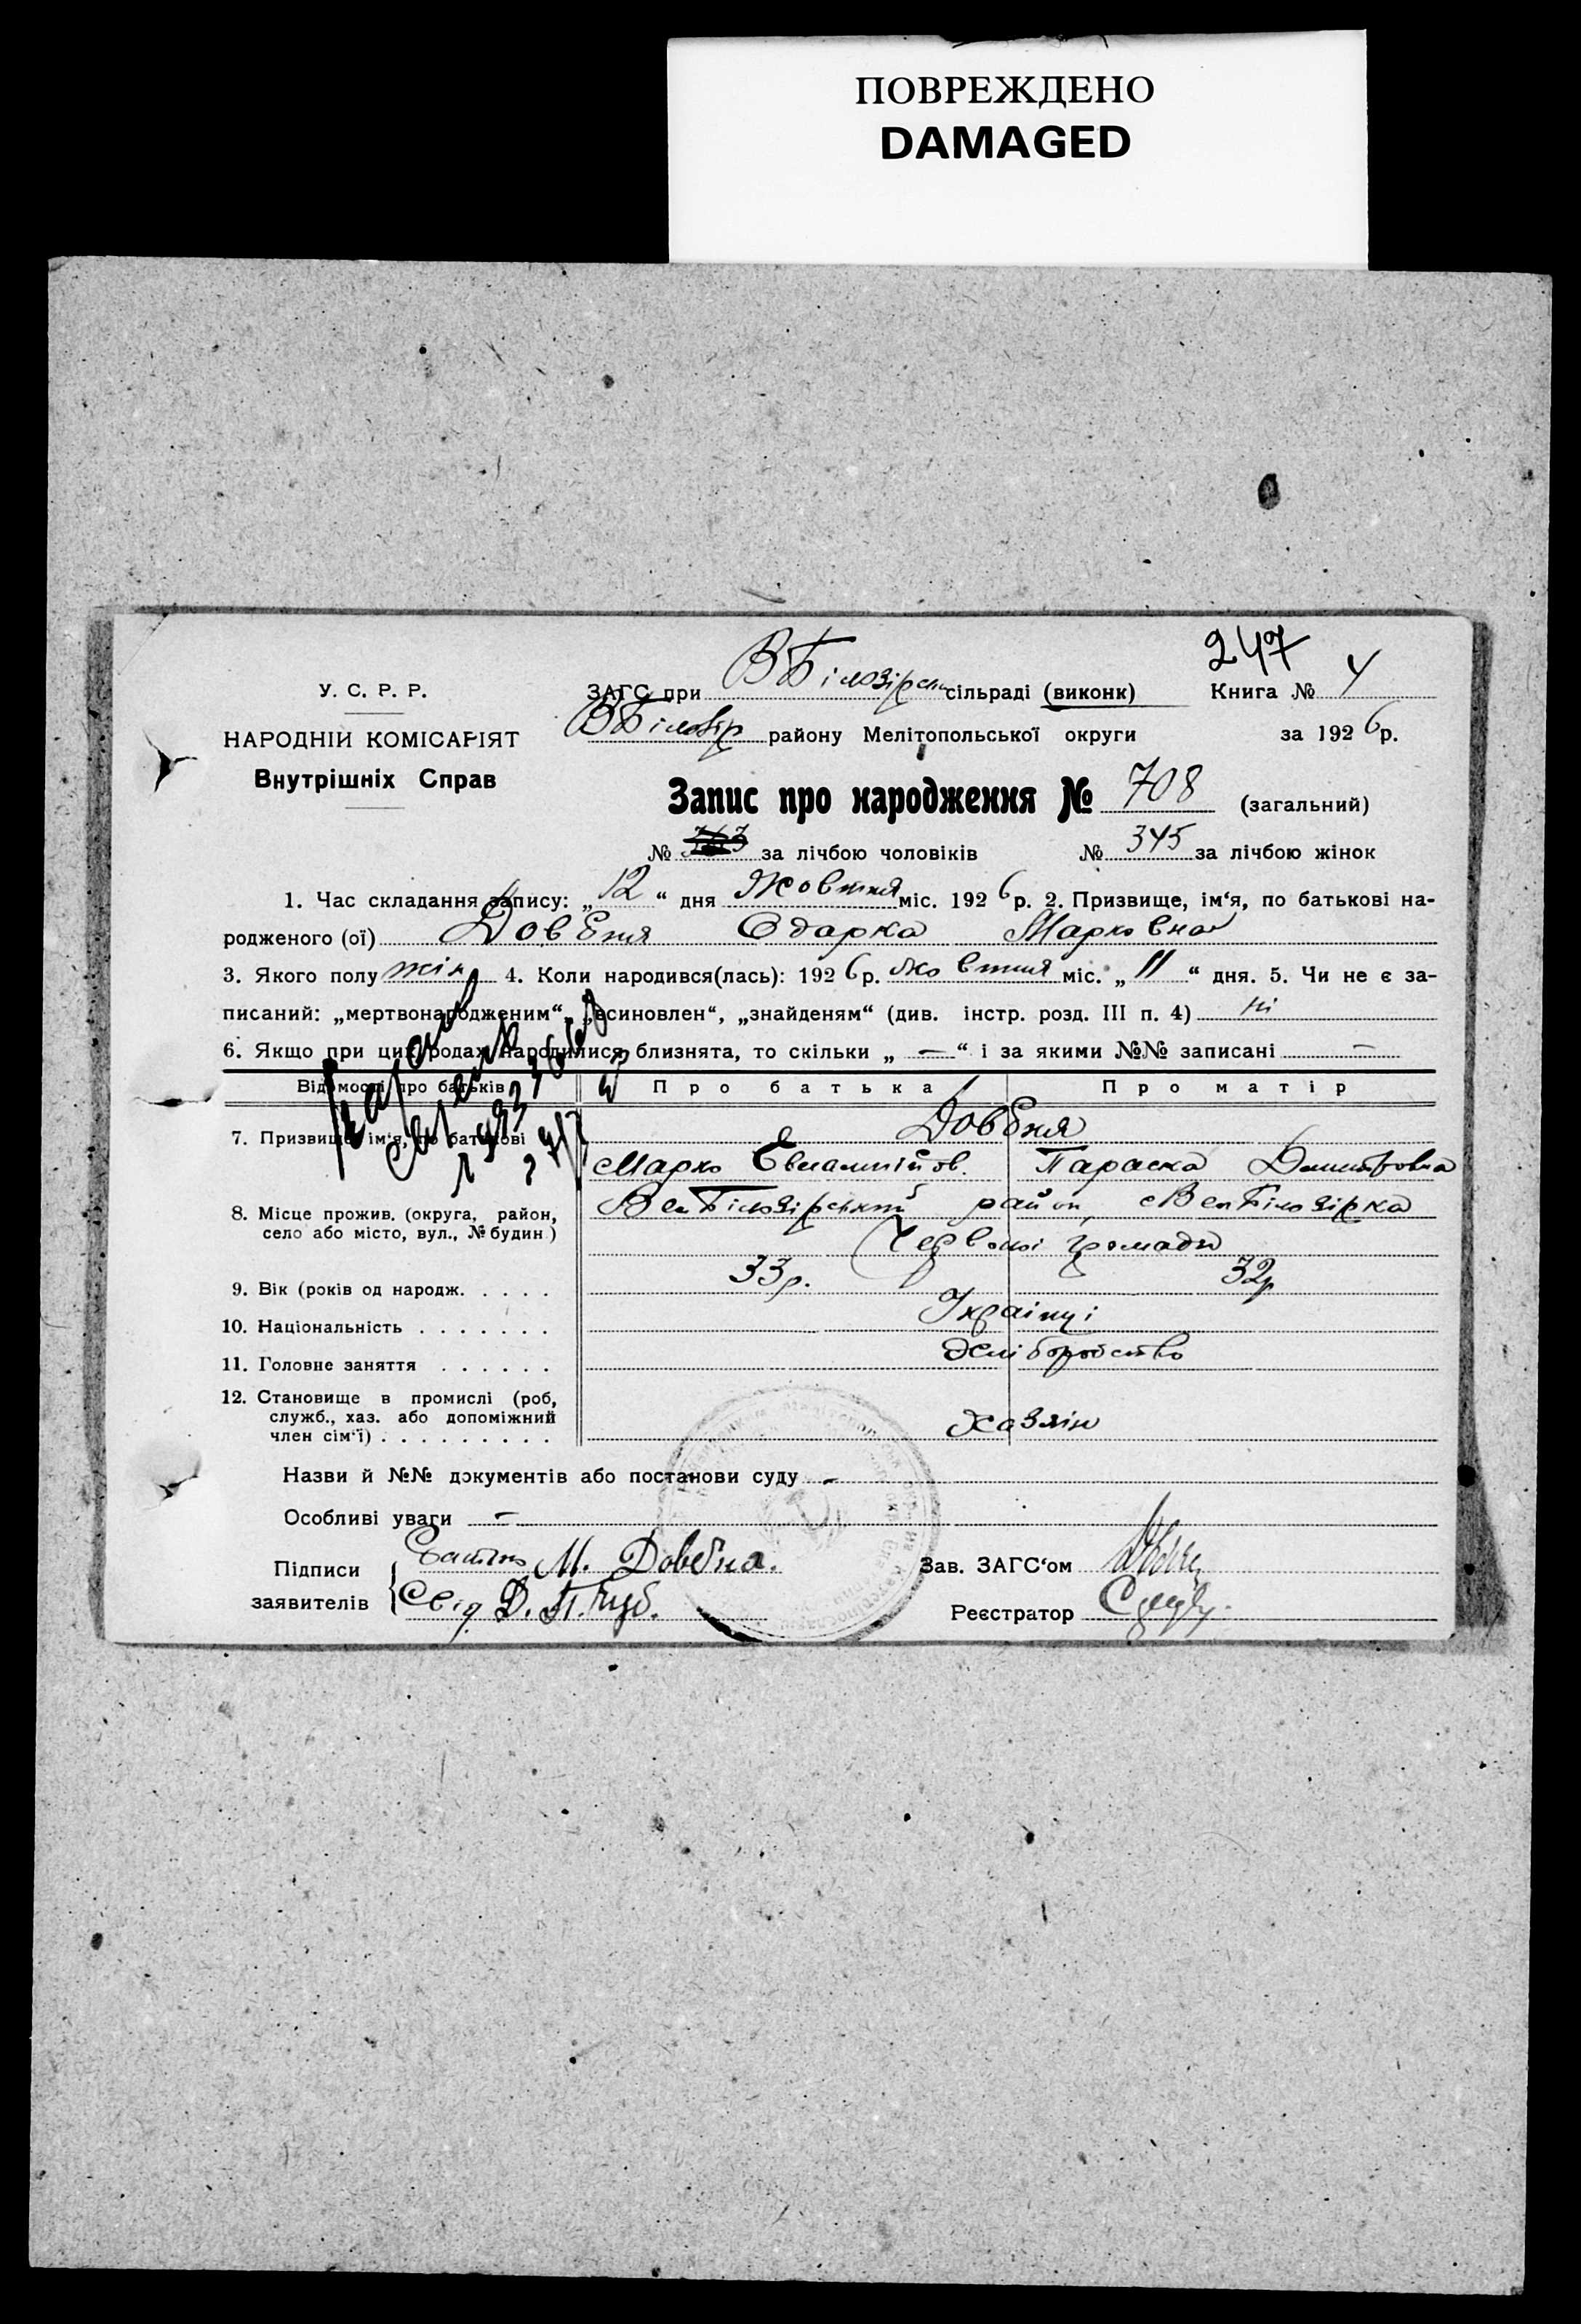 ПОВРЕЖДЕНО
DAMAGED
247
У. С. Р. Р.
ЗАГС при ВБілозірськ сільраді (виконк) Книга № 4
НАРОДНІЙ КОМІСАРІЯТ
ВБілозір району Мелітопольської округи за 1926 р.
Внутрішніх Справ
Запис про народження № 708 (загальний)
№ за лічбою чоловіків № 345 за лічбою жінок
1. Час складання запису: „12“ дня Жовтня міс. 1926 р. 2. Призвище, ім‘я, по батькові на-
родженого (ої) Довбня Одарка Марковна
3. Якого полу жін 4. Коли народився(лась): 1926 р. жовтня міс. „11“ дня. 5. Чи не є за-
писаний: „мертвонародженим“, „всиновлен“, „знайденям“ (див. інстр. розд. III п. 4) ні
6. Якщо при цих родах народилися близнята, то скільки „ — “ і за якими №№ записані —
Відомості про батьків Про батька Про матір
7. Призвище, ім‘я, по батькові Довбня
Марко Евлампійов. Параска Дмитровна
8. Місце прожив. (округа, район, ВелБілозірський район, ВелБілозірка
село або місто, вул., № будин.)
Червоної громади
9. Вік (років од народж. . . . . 33р. 32р
10. Національність . . . . . . . Українці
11. Головне заняття . . . . . . хліборобство
12. Становище в промислі (роб,
служб., хаз. або допоміжний
член сім‘ї) . . . . . . . . . Хазяїн
Назви й №№ документів або постанови суду —
Особливі уваги —
Підписи Батько М. Довбня. Зав. ЗАГС‘ом
заявителів Свід Реєстратор